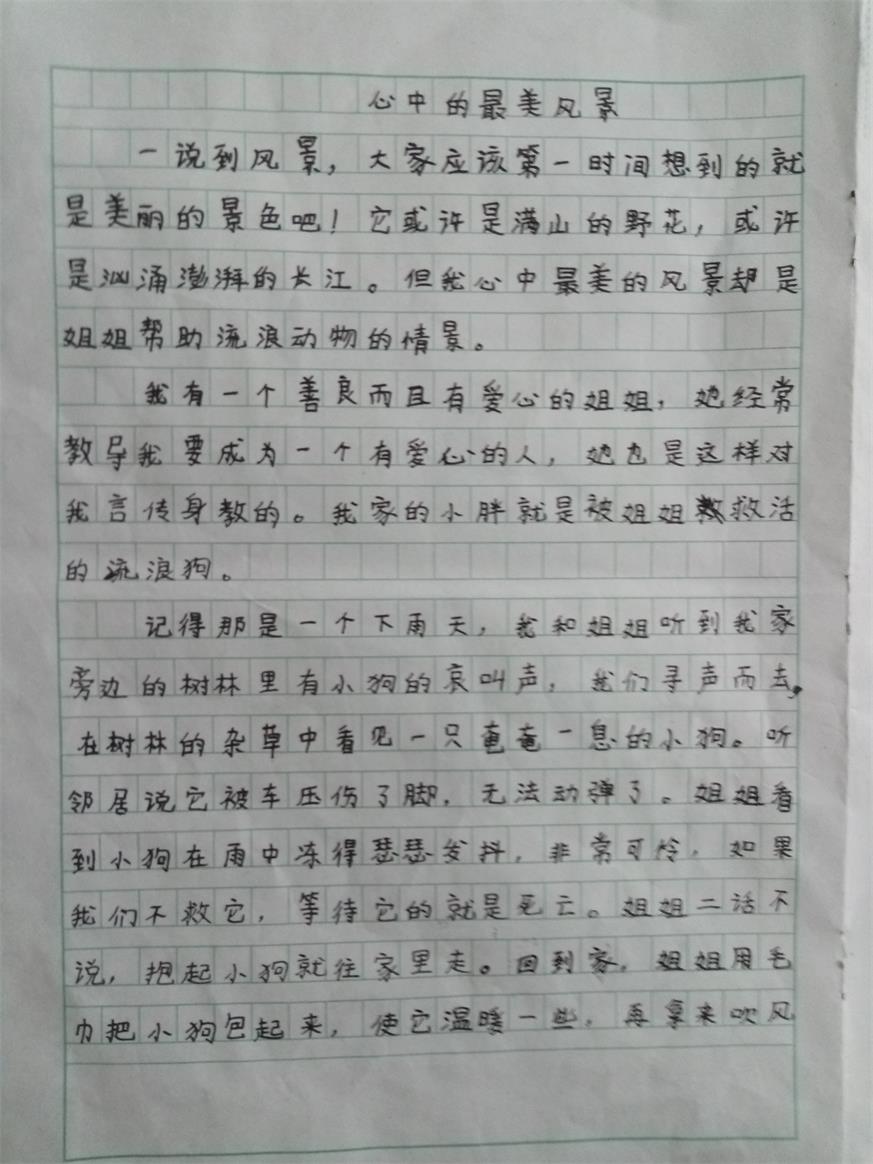 心中的最美风景
一说到风景，大家应该第一时间想到的就
是美丽的景色吧！它或许是满山的野花，或许
是汹涌澎湃的长江。但我心中最美的风景却是
姐姐帮助流浪动物的情景。
我有一个善良而且有爱心的姐姐，她经常
教导我要成为一个有爱心的人，她也是这样对
我言传身教的。我家的小胖就是被姐姐救活
的流浪狗。
记得那是一个下雨天，我和姐姐听到我家
旁边的树林里有小狗的哀叫声，我们寻声而去，
在树林的杂草中看见一只奄奄一息的小狗。听
邻居说它被车压伤了脚，无法动弹了。姐姐看
到小狗在雨中冻得瑟瑟发抖，非常可怜，如果
我们不救它，等待它的就是死亡。姐姐二话不
说，抱起小狗就往家里走。回到家，姐姐用毛
巾把小狗包起来，使它温暖一些，再拿来吹风